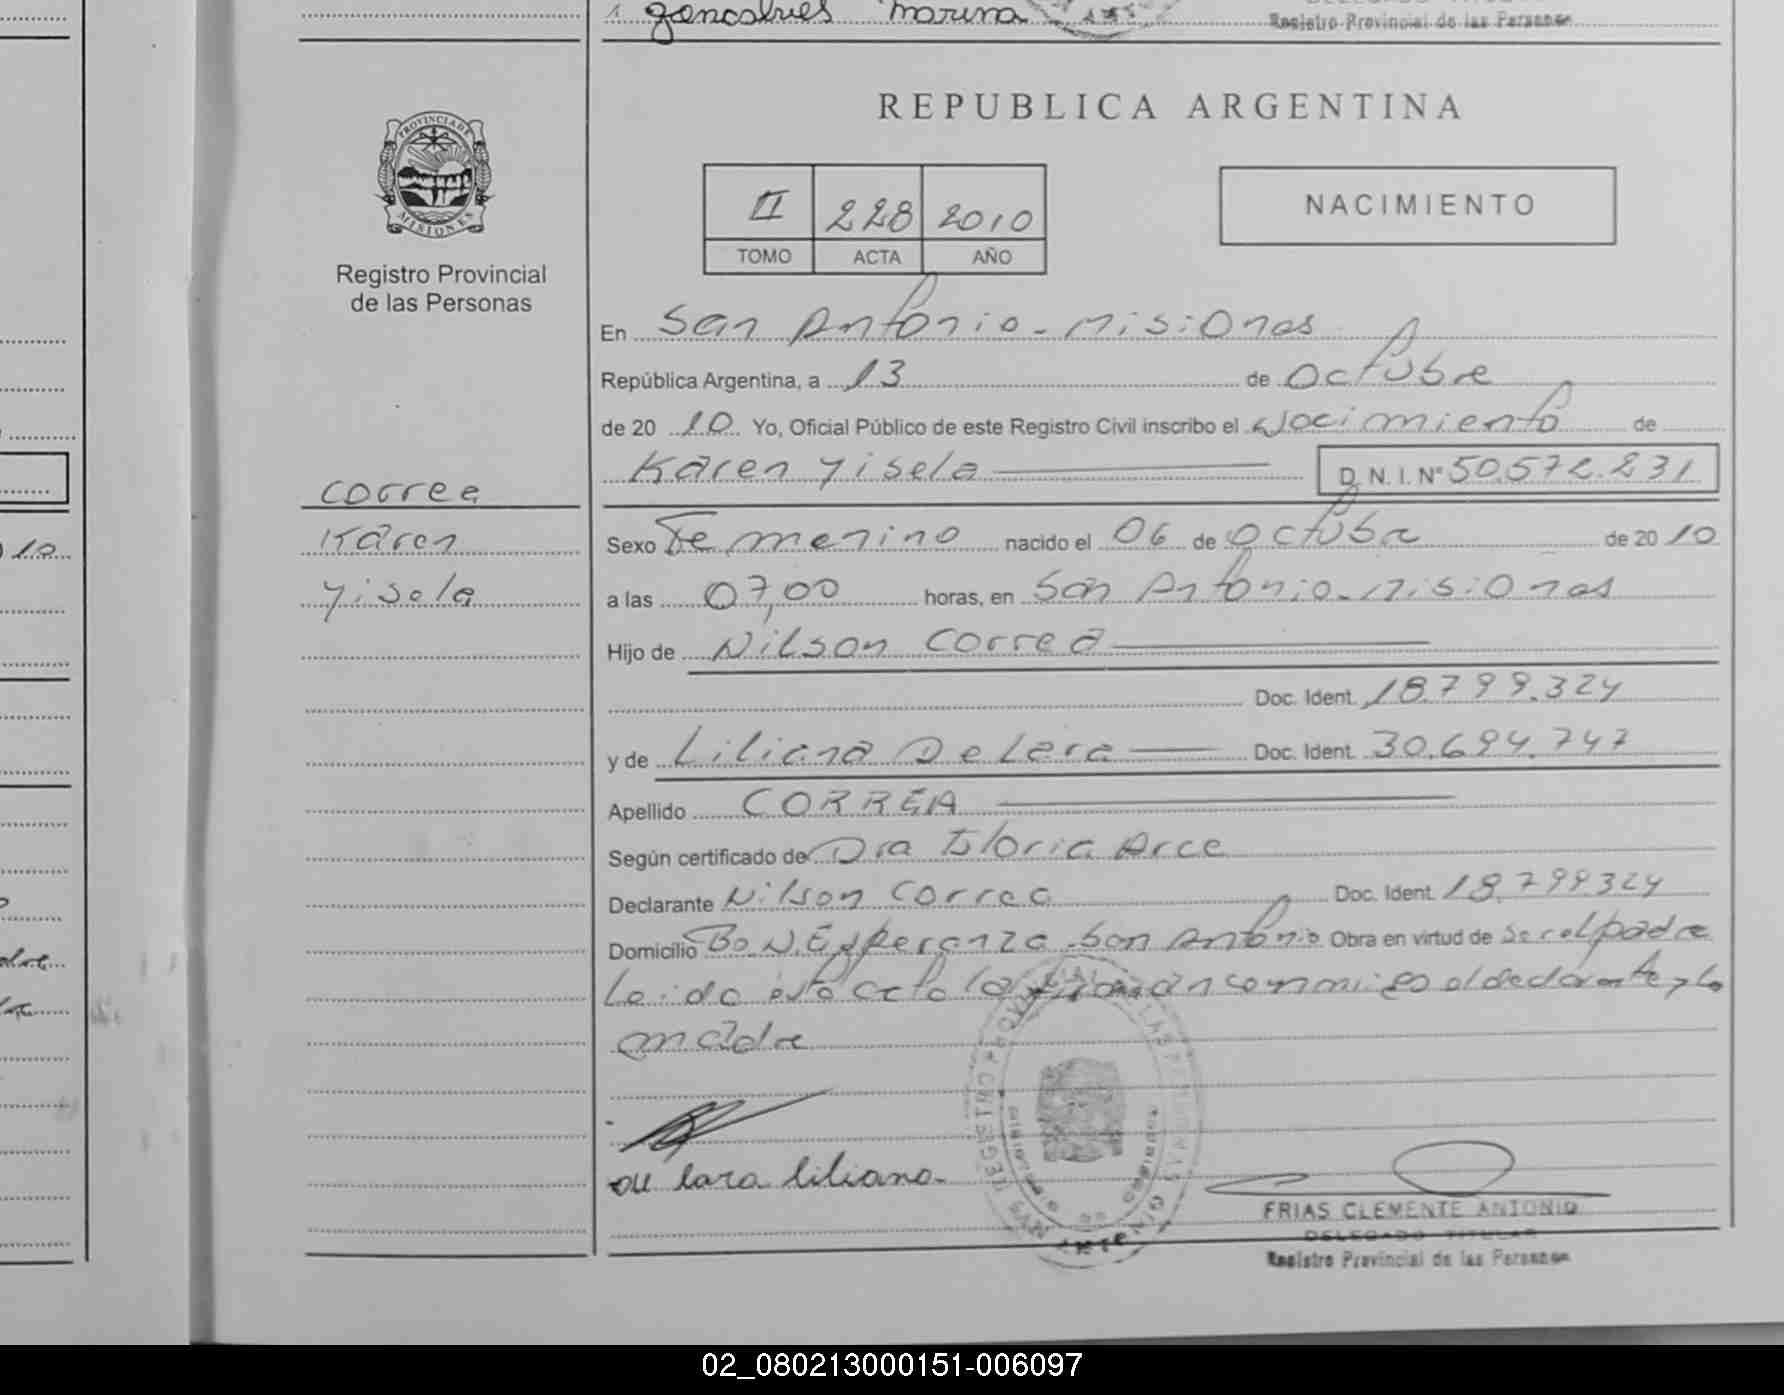 goncalves Marina
Registro Provincial de las Personas
PROVINCIA DE
MISIONES
Registro Provincial
de las Personas
REPUBLICA ARGENTINA
II 228 2010
TOMO ACTA AÑO
NACIMIENTO
En San Antonio - Misiones
República Argentina, a 13 de Octubre
de 20 10 Yo, Oficial Público de este Registro Civil inscribo el Nacimiento de
Karen Yisela D.N.I. Nº 50.572.231
Correa
Karen
Yisela
Sexo Femenino nacido el 06 de Octubre de 20 10
a las 07,00 horas, en San Antonio - Misiones
Hijo de Nilson Correa
Doc. Ident. 18.799.324
y de Liliana De Lara Doc. Ident. 30.694.747
Apellido CORREA
Según certificado de Dra Gloria Arce
Declarante Nilson Correa Doc. Ident. 18.799324
Domicilio Bo N. Esperanza San Antonio Obra en virtud de ser el padre
Leido esta acta la firman conmigo el declarante y la
madre
de lara liliana
FRIAS CLEMENTE ANTONIO
DELEGADO TITULAR
Registro Provincial de las Personas
10
02_080213000151-006097